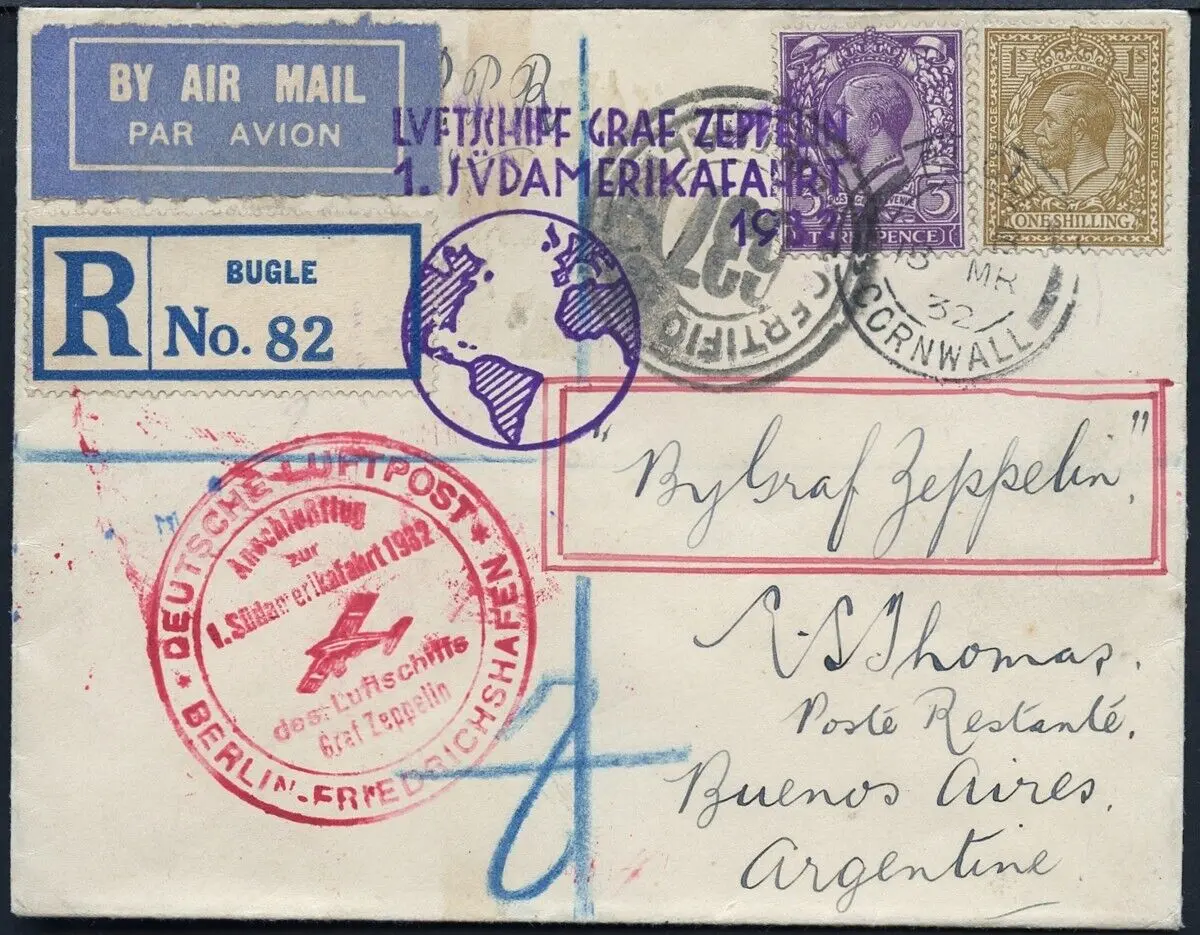 BY AIR MAIL
PAR AVION
LUFTSCHIFF GRAF ZEPPELIN
1. SÜDAMERIKAFAHRT
1932
POSTAGE
REVENUE
THREE PENCE
3
3
1S
1S
ONE SHILLING
R
BUGLE
No. 82
CERTIFIC
MR
32
CORNWALL
"By Graf Zeppelin."
DEUTSCHE LUFTPOST
BERLIN-FRIEDRICHSHAFEN
Anschlußflug
zur
1. Südamerikafahrt 1932
des Luftschiffs
Graf Zeppelin
Thomas.
Poste Restanté.
Buenos Aires.
Argentine